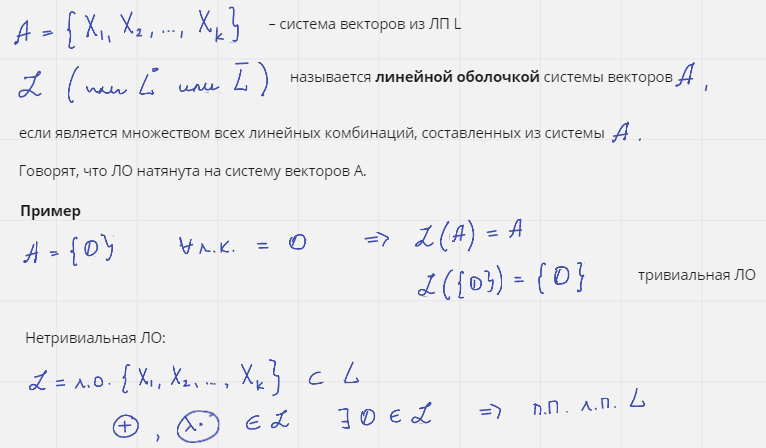 A = {X₁, X₂, ..., Xₖ} – система векторов из ЛП L
ℒ (или L* или L̄) называется линейной оболочкой системы векторов A,
если является множеством всех линейных комбинаций, составленных из системы A.
Говорят, что ЛО натянута на систему векторов А.
Пример
A = {0} ∀ л.к. = 0 => ℒ(A) = A
ℒ({0}) = {0} тривиальная ЛО
Нетривиальная ЛО:
ℒ = л.о. {X₁, X₂, ..., Xₖ} ⊂ L
⊕, λ· ∈ ℒ ∃ 0 ∈ ℒ => п.п. л.п. L